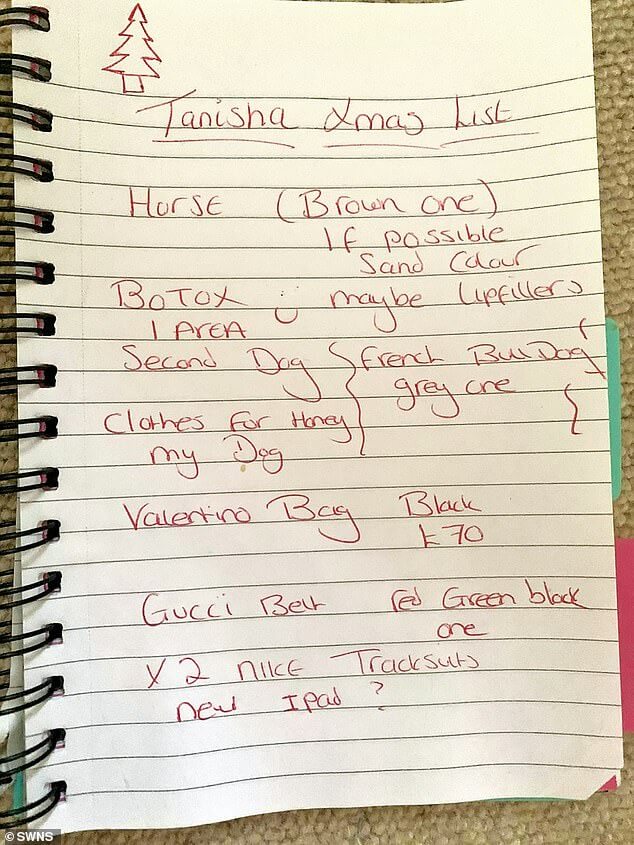 Tanisha Xmas List
Horse (Brown one)
If possible
Sand Colour
BOTOX maybe lipfillers
1 AREA
Second Dog French Bull Dog
grey one
Clothes for Honey
my Dog
Valentino Bag Black
£70
Gucci Belt red Green black
one
X 2 nike Tracksuits
new Ipad ?
© SWNS